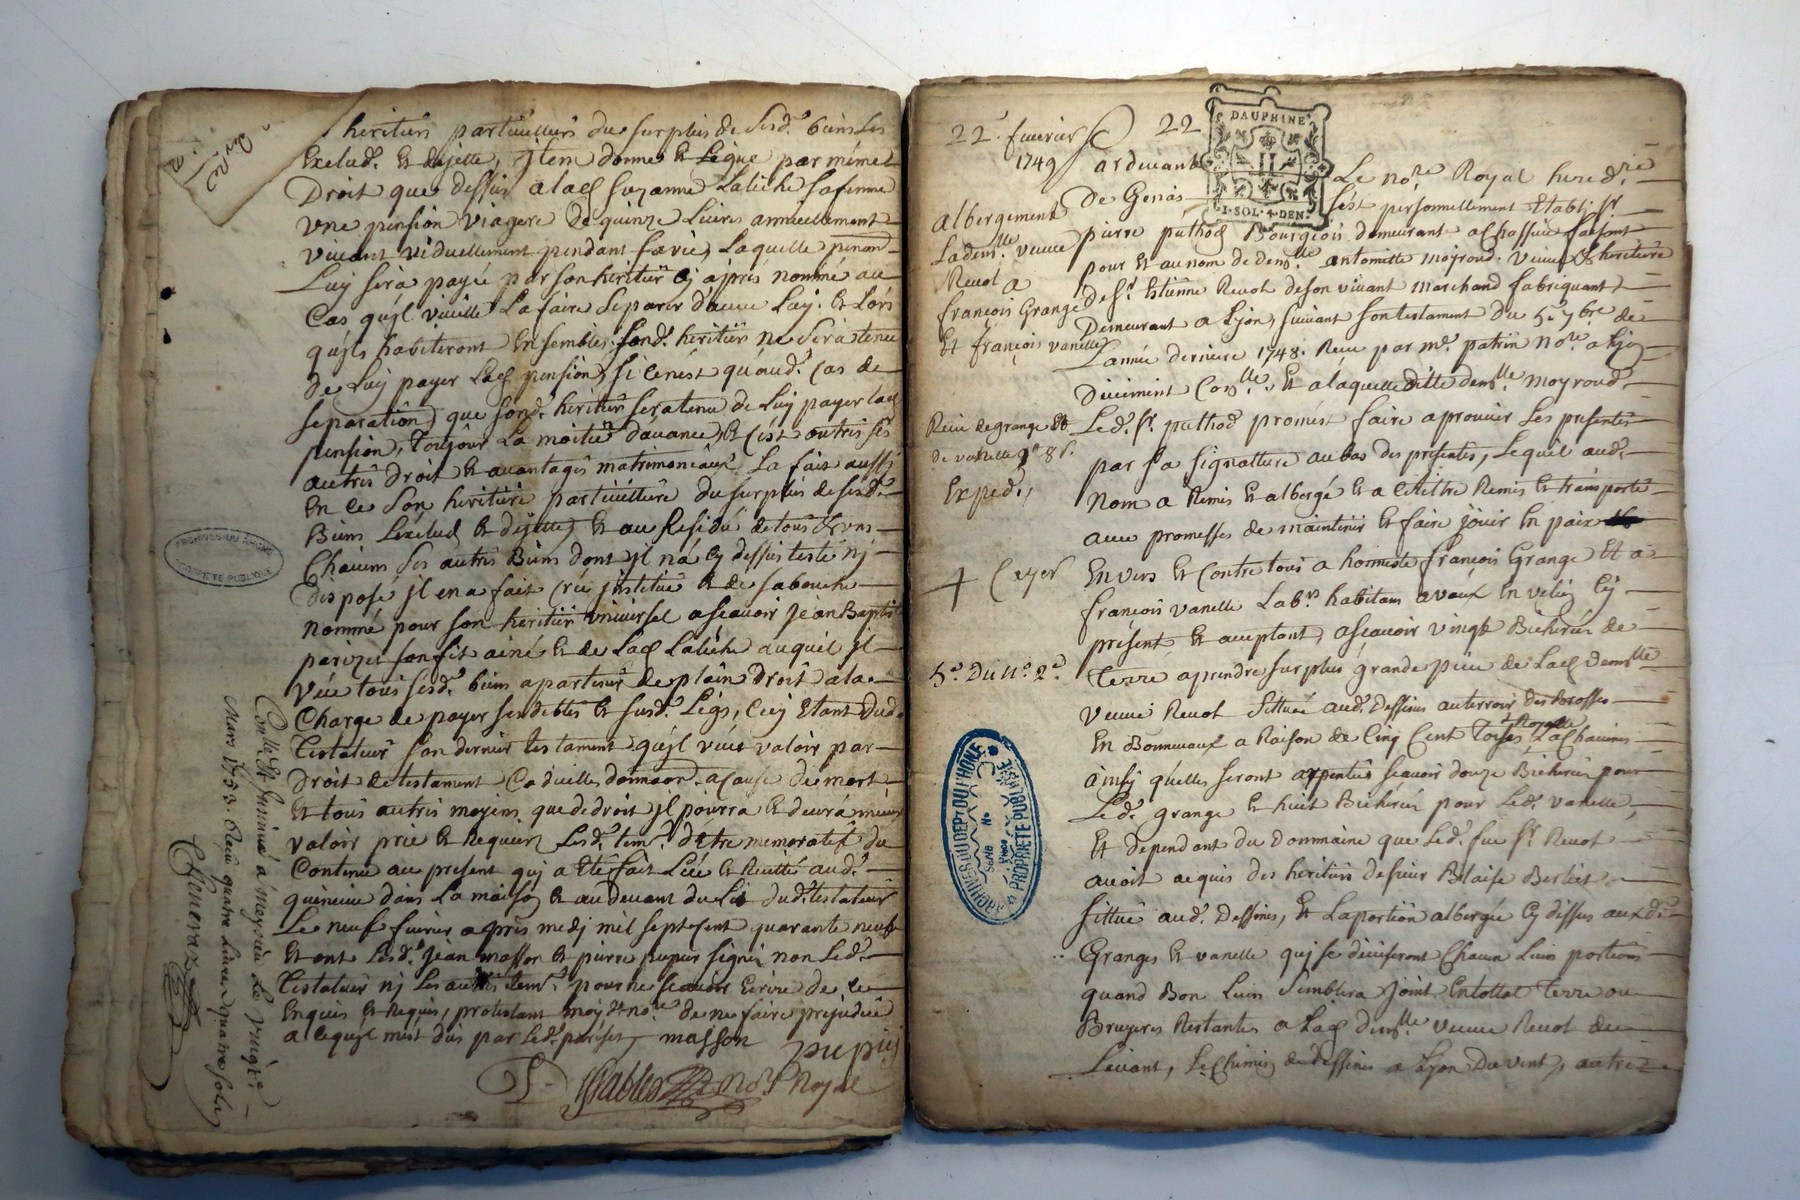 heritiers particuilliers du surplus de sesd. biens les
Exclud. Et dejette, jtem donne Et Legue par méme
Droit que dessus a lad Suzanne Laliche sa femme
vne pension viagere de quinze Livres annuellement
vivant viduellement pendant sa vie, Laquelle pension
Luy sera payée par son heritier cy apres nommé au
Cas qu'jl vüeille La faire Separer d'avec Luy. Et Lors
qu'jls habiteront Ensembles. sond. heritier ne sera tenu
De Luy payer Lad pension, si cen'est qu'aud. Cas de
separation, que sond. heritier sera tenu de Luy payer lad
pension, Toujour La moitier d'avance, Et C'est outres ses
autres droit Et avantages matrimoniaux. La fait aussy
En ce son heritiere particuilliere du surplus de sesd.
Biens L'exclud Et dejette, Et au Residu de tous Et uns
Chacuns ses autres Biens dont jl n'a cy dessus testé nj
disposé jl en a fait Créé jnstitué Et de sa bouche
nommé pour son heritier universel ascavoir Jean Baptiste
parizet son fils ainé Et de Lad Laliche auquel jl
veu tous sesd. biens apartenir de plain Droit a la
Charge de payer ses debtes Et susd. Legs, Cecy Etant dud.
Testateur son dernier testament qu'jl veut valoir par
Droit de testament Codicille donnaon. a cause de mort
Et tous autres moyens que de droit jl pourra Et devra mieux
valoir prie Et Requiert Lesd. tem. d'etre memoratif du
Contenu au present qui a Eté fait Leu Et Recitté aud.
quinieux dans La maison Et au devant du Lit dud. testateur
Le neuf fevrier apres medj mil sept Cent quarante neuf
Et ont Lesd. Jean masson Et pierre pupier signés non Led.
Testateur nj Les autres tem. pour ne scavoir Ecrire de ce
Enquis Et Requis, protestant moy d. nore de ne faire prejudice
a ce qu'jl m'est dus par Led. parizet, masson pupier
Nore Royal
Conlle Et jnsinué a meyzieu Le vingt
Mars 1753. Reçu quatre Livres quatre sols
ARCHIVES DU RHÔNE
PROPRIÉTÉ PUBLIQUE
22e. fevrier
1749
22
DAUPHINÉ
II
1·SOL·4·DEN.
albergement
Lademlle veuve
Revol a
françois Grange
Et françois vanelle
Reçu de grange Et
de vanelle
Exped.,
5e. Du No. 2d.
ARCHIVES DU DEPT DU RHÔNE
Série No
PROPRIÉTÉ PUBLIQUE
ardevant Le nore Royal heredre
De Genas s'est personnellement Etabli sr.
pierre puthod Bourgeois demeurant a Chassieu faisant
pour Et au nom de demlle antoinette moyroud. veuve Et heritiere
de sr. Estienne Revol de son vivant marchand fabriquant
Demeurant a Lyon, suivant son testament du 5e. 7bre de
L'année derniere 1748. Reçu par me. patrin Nore. a Lyon
Düement Conlle, Et a laquelle ditte demlle moyroud.
Led. sr. puthod promest faire aprouver Les presentes
par sa signatture au bas des presentes, Lequel aud.
Nom a Remis Et albergé Et a tiltre Remis Et transporte
avec promesses de maintenir Et faire joüir En paix
Envers Et Contre tous a honneste françois Grange Et a
françois vanelle Labrs habitans a vaux En velin Cy
présent Et acceptant, ascavoir vingt Bicherées de
Terre a prendre sur plus grande piece de Lad demlle
veuve Revol Sittuée aud. Dessines au terroir des brosses
En Bonneveaux a Raison de Cinq Cent Toises Royalle La Chacune
Ainsy qu'elles seront arpentées scavoir douze Bicherées pour
Led. grange Et huit Bicherées pour Led. vanelle,
Et dependant du Dommaine que Led. feu sr. Revol
avoit acquis des heritiers de sieur Blaise Berliet
Sittué aud. Dessines, Et La portion albergée Cy dessus auxd.
Granges Et vanelle qui se diviseront Chacun Leurs portions
quand Bon Leur semblera joint En tottal terre ou
Bruyeres Restantes a Lad demlle veuve Revol du
Levant, Le Chemin de Dessines a Lyon Du vent, autre